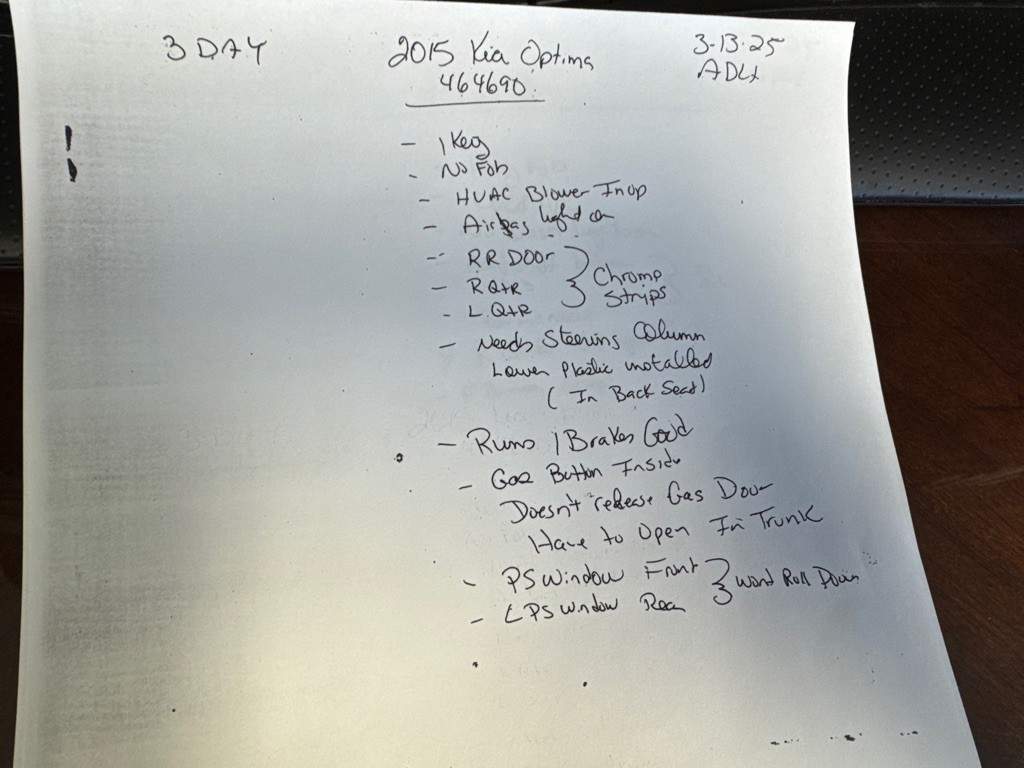 3 DAY
2015 Kia Optima
3-13-25
464690
- 1 Key
- No Fob
- HVAC Blower Inop
- Airbag light on
- RR Door
- R Qtr
- L Qtr
Chrome
Strips
- Needs Steering Column
Lower Plastic installed
(In Back Seat)
- Runs / Brakes Good
- Gas Button Inside
Doesn't release Gas Door
Have to Open In Trunk
- PS Window Front
- PS Window Rear
Wont Roll Down